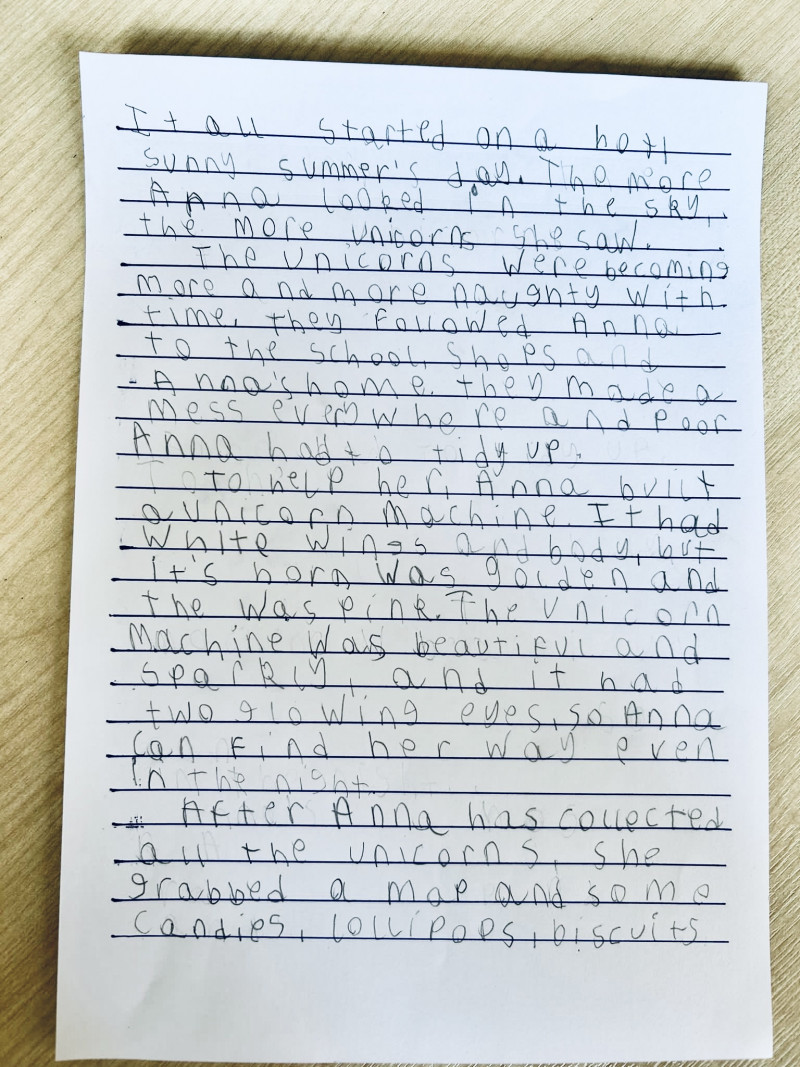 It all started on a hot,
sunny summer's day. The more
Anna looked in the sky,
the more unicorns she saw.
The unicorns were becoming
more and more naughty with
time. they followed Anna
to the school, shops and
Anna's home. they made a
mess everywhere and poor
Anna had to tidy up.
To help her, Anna built
a unicorn machine. It had
white wings and body, but
it's horn was golden and
the was pink. The unicorn
machine was beautiful and
sparkly, and it had
two glowing eyes, so Anna
can find her way even
in the night.
After Anna has collected
all the unicorns, she
grabbed a map and some
candies, lollipops, biscuits